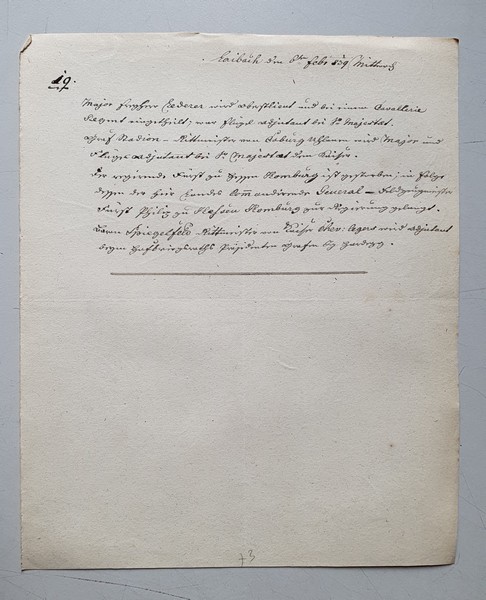 Laibach den 6ten Febr 839 Mittwoch
19.
Major Freyherr Lederer wird Obristlieut und bei einem Cavallerie
Regmt eingetheilt; war Flügel Adjutant bei Sr Majestät.
Graf Stadion – Rittmeister von Coburg Uhlanen wird Major und
Flügel Adjutant bei Sr Majestät dem Kaiser.
Der regierende Fürst zu Hessen Homburg ist gestorben; in Folge
dessen der hier Landes Commandirende General – Feldzeugmeister
Fürst Philip zu Hessen Homburg zur Regierung gelangt.
Baron Spiegelfeld Rittmeister von Kaiser Chev: Legers wird Adjutant
beym Hofkriegsraths Präsidenten Grafen Hardegg.
73